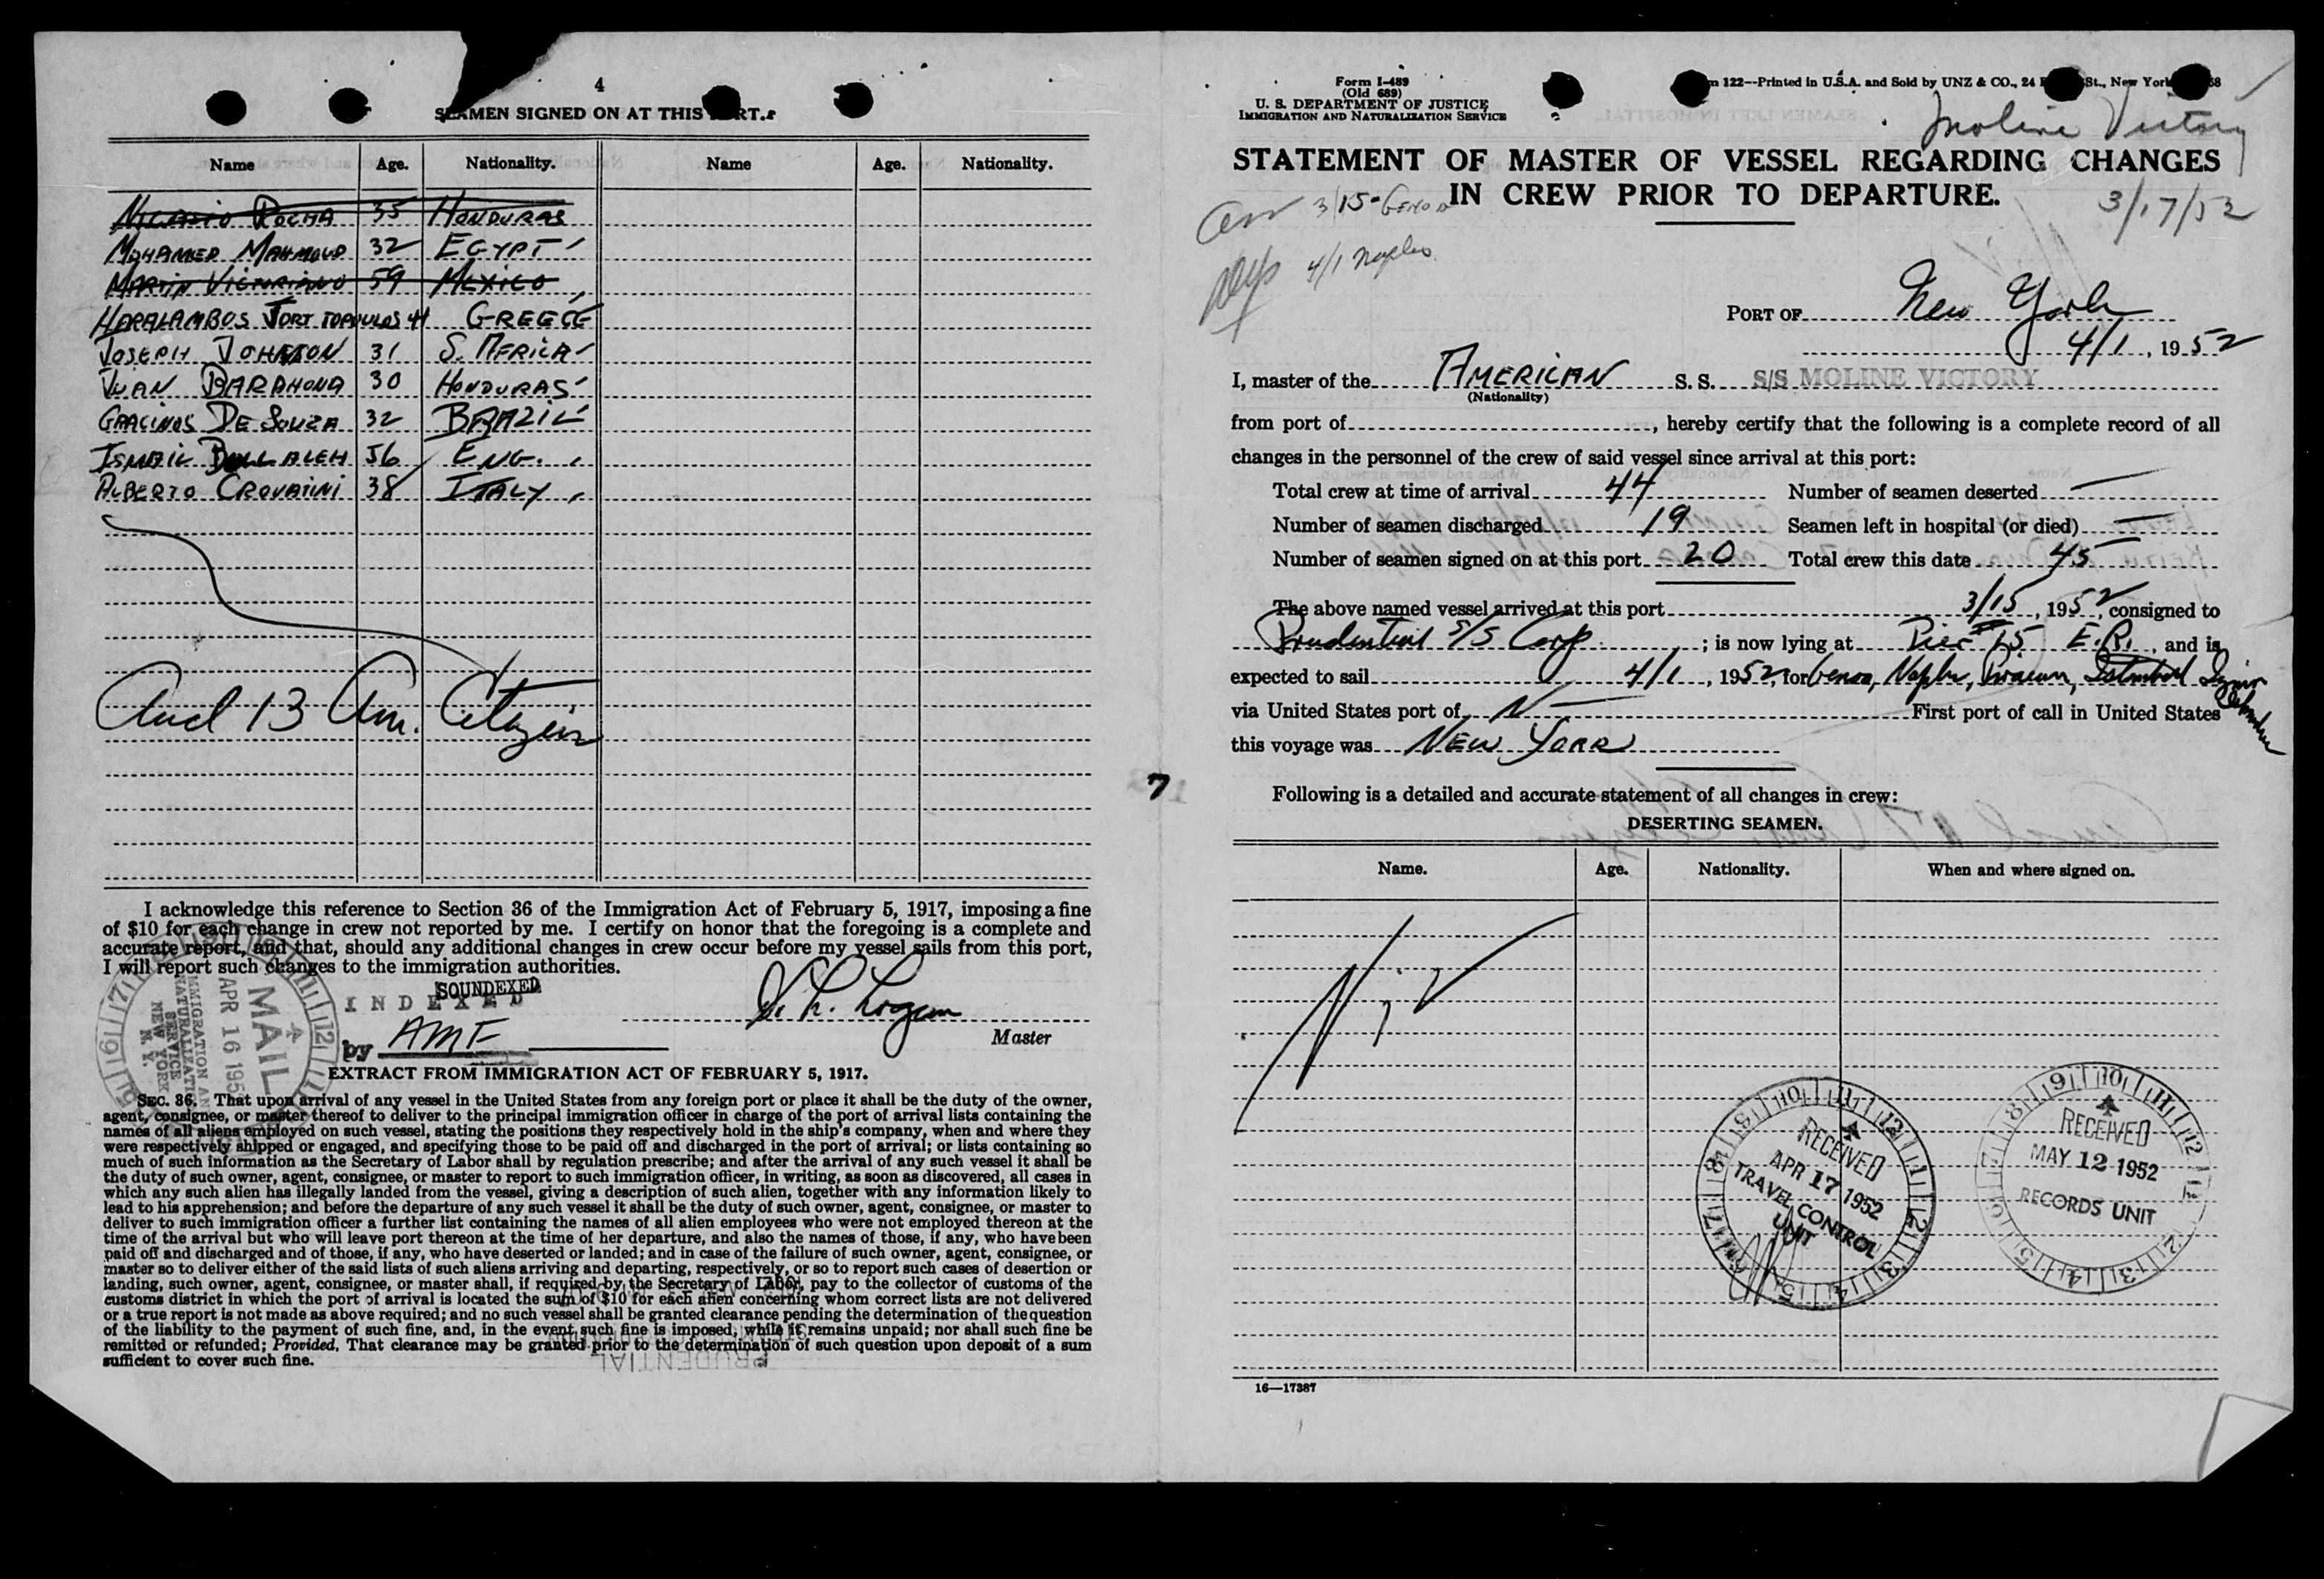 4
SEAMEN SIGNED ON AT THIS PORT.
Name Age. Nationality. Name Age. Nationality.
ROCHA 35 HONDURAS
MOHAMED MAHMOUD 32 EGYPT
MARTIN VICTORIANO 59 MEXICO
HARALAMBOS 41 GREECE
JOSEPH JOHNSON 31 S. AFRICA
JUAN BARAHONA 30 HONDURAS
DE SOUZA 32 BRAZIL
ISMAIL 56 ENG.
ALBERTO CROVATINI 38 ITALY
And 13 Am. Citizens
I acknowledge this reference to Section 36 of the Immigration Act of February 5, 1917, imposing a fine
of $10 for each change in crew not reported by me. I certify on honor that the foregoing is a complete and
accurate report, and that, should any additional changes in crew occur before my vessel sails from this port,
I will report such changes to the immigration authorities.
SOUNDEXED
INDEXED
by AMF
Master
MAIL
APR 16 195
IMMIGRATION AND
NATURALIZATION
SERVICE
NEW YORK
N. Y.
EXTRACT FROM IMMIGRATION ACT OF FEBRUARY 5, 1917.
SEC. 36. That upon arrival of any vessel in the United States from any foreign port or place it shall be the duty of the owner,
agent, consignee, or master thereof to deliver to the principal immigration officer in charge of the port of arrival lists containing the
names of all aliens employed on such vessel, stating the positions they respectively hold in the ship's company, when and where they
were respectively shipped or engaged, and specifying those to be paid off and discharged in the port of arrival; or lists containing so
much of such information as the Secretary of Labor shall by regulation prescribe; and after the arrival of any such vessel it shall be
the duty of such owner, agent, consignee, or master to report to such immigration officer, in writing, as soon as discovered, all cases in
which any such alien has illegally landed from the vessel, giving a description of such alien, together with any information likely to
lead to his apprehension; and before the departure of any such vessel it shall be the duty of such owner, agent, consignee, or master to
deliver to such immigration officer a further list containing the names of all alien employees who were not employed thereon at the
time of the arrival but who will leave port thereon at the time of her departure, and also the names of those, if any, who have been
paid off and discharged and of those, if any, who have deserted or landed; and in case of the failure of such owner, agent, consignee, or
master so to deliver either of the said lists of such aliens arriving and departing, respectively, or so to report such cases of desertion or
landing, such owner, agent, consignee, or master shall, if required by the Secretary of Labor, pay to the collector of customs of the
customs district in which the port of arrival is located the sum of $10 for each alien concerning whom correct lists are not delivered
or a true report is not made as above required; and no such vessel shall be granted clearance pending the determination of the question
of the liability to the payment of such fine, and, in the event such fine is imposed, while it remains unpaid; nor shall such fine be
remitted or refunded; Provided, That clearance may be granted prior to the determination of such question upon deposit of a sum
sufficient to cover such fine.
7
Form I-489
(Old 689)
U. S. DEPARTMENT OF JUSTICE
IMMIGRATION AND NATURALIZATION SERVICE
122--Printed in U.S.A. and Sold by UNZ & CO., 24 St., New York
Moline Victory
STATEMENT OF MASTER OF VESSEL REGARDING CHANGES
IN CREW PRIOR TO DEPARTURE.
3/17/52
Arr 3/15 - Genoa
Dep 4/1 Naples
PORT OF New York
4/1, 1952
I, master of the AMERICAN S. S. S/S MOLINE VICTORY
(Nationality)
from port of , hereby certify that the following is a complete record of all
changes in the personnel of the crew of said vessel since arrival at this port:
Total crew at time of arrival 44 Number of seamen deserted —
Number of seamen discharged 19 Seamen left in hospital (or died) —
Number of seamen signed on at this port 20 Total crew this date 45
The above named vessel arrived at this port 3/15, 1952, consigned to
Prudential S/S Corp ; is now lying at Pier # E.R., and is
expected to sail 4/1, 1952, for Genoa, Naples, Piraeus, Istanbul
via United States port of N — First port of call in United States
this voyage was NEW YORK
Following is a detailed and accurate statement of all changes in crew:
DESERTING SEAMEN.
Name. Age. Nationality. When and where signed on.
RECEIVED
APR 17 1952
TRAVEL CONTROL
UNIT
RECEIVED
MAY 12 1952
RECORDS UNIT
16—17387